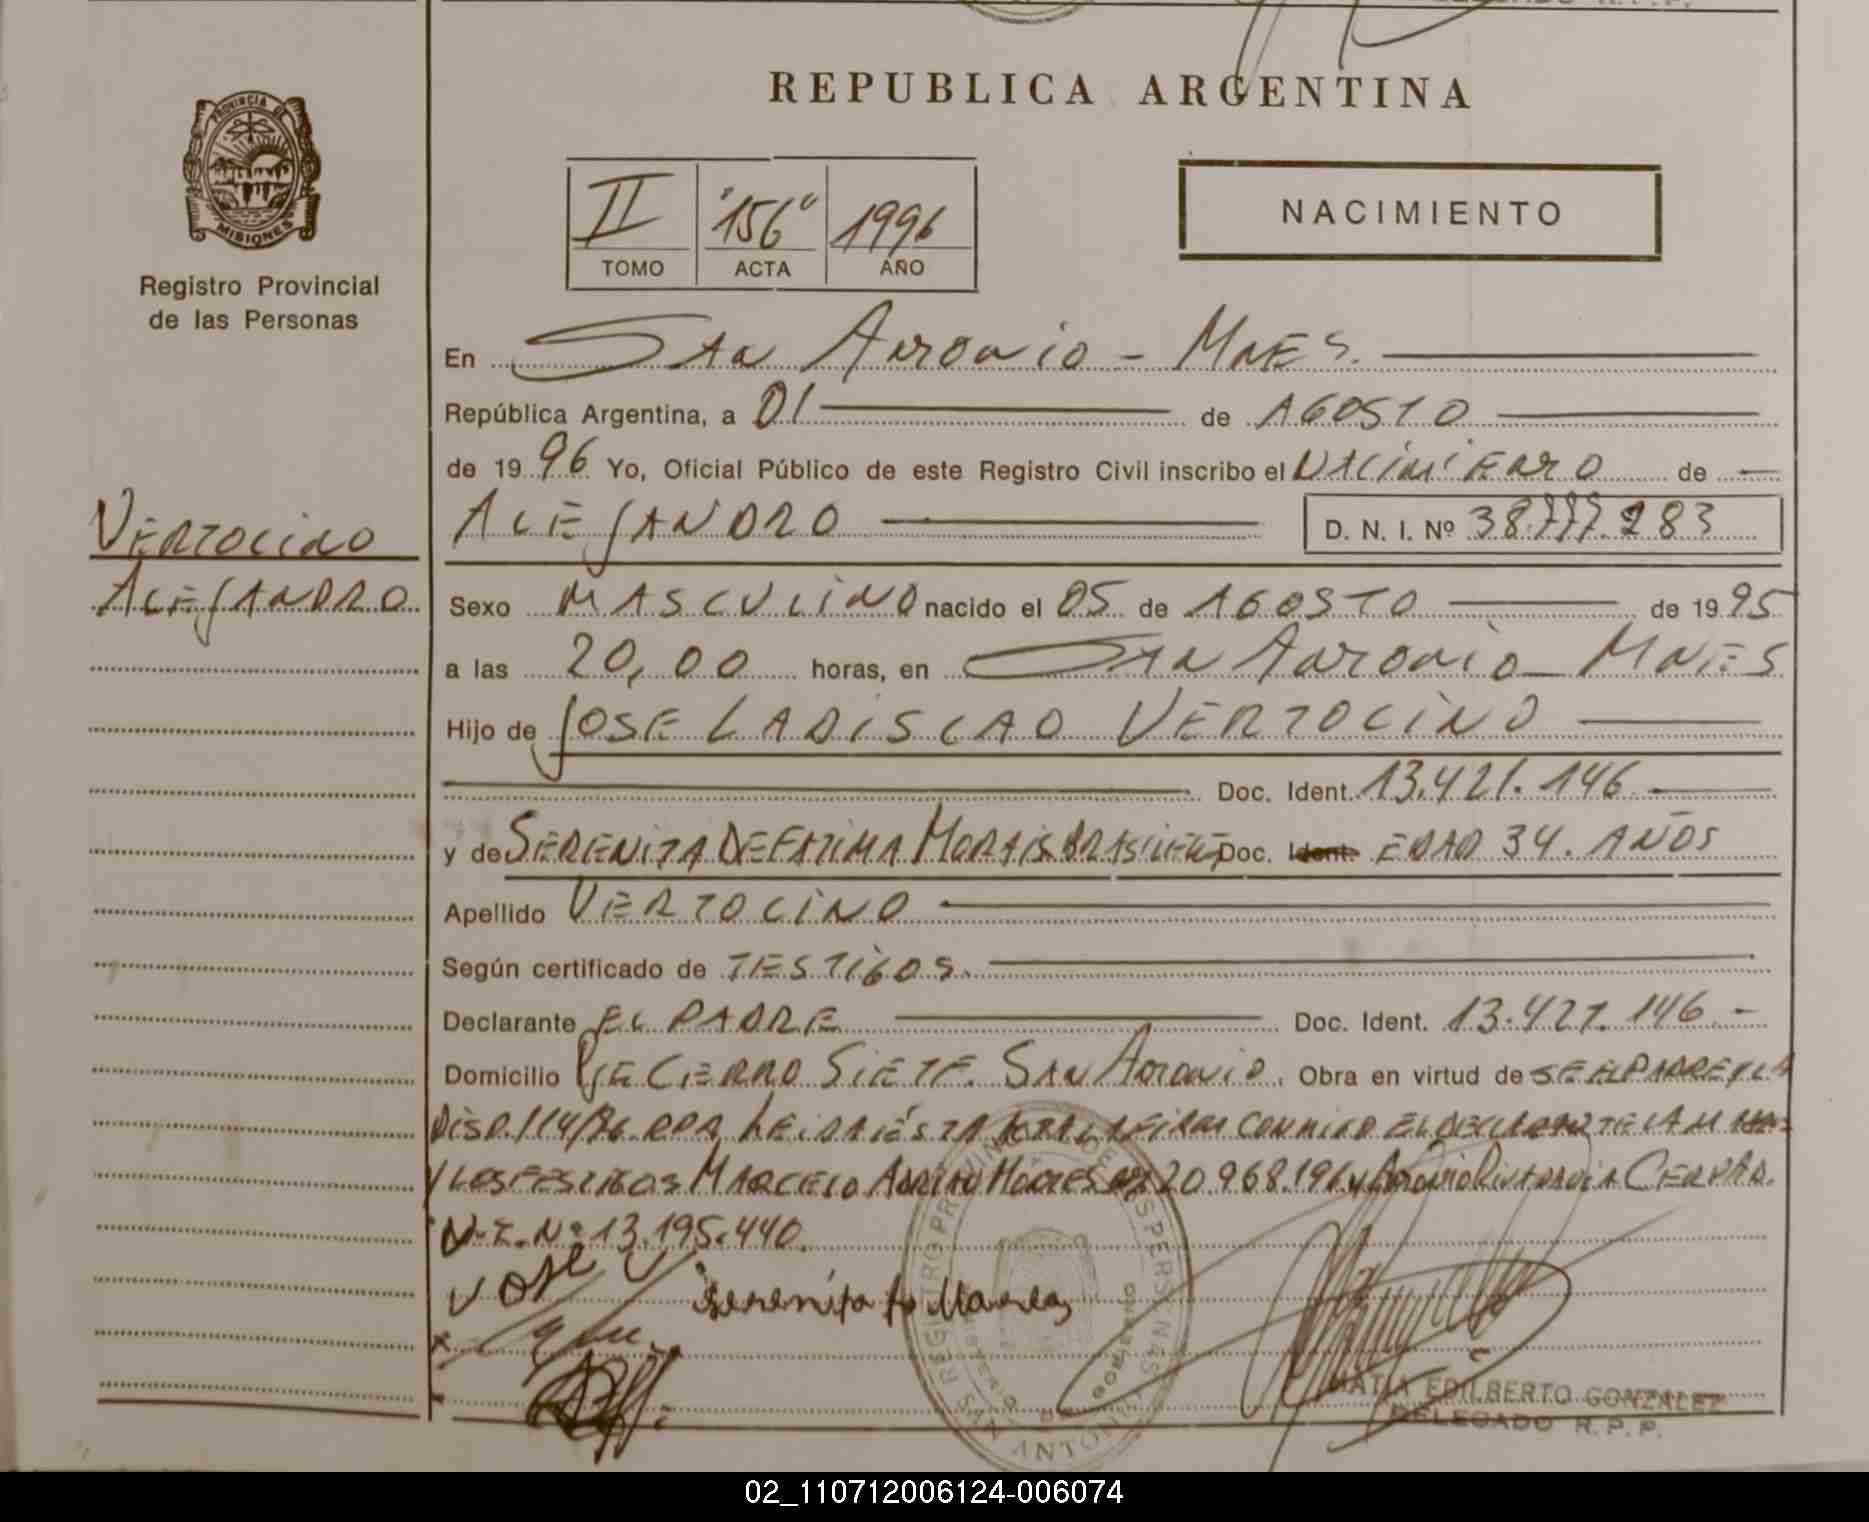 REPUBLICA ARGENTINA
PROVINCIA DE
MISIONES
Registro Provincial
de las Personas
II "156" 1996
TOMO ACTA AÑO
NACIMIENTO
En San Antonio - Mnes.
República Argentina, a 01 de AGOSTO
de 1996 Yo, Oficial Público de este Registro Civil inscribo el NACIMIENTO de
VERTOCINO
ALEJANDRO
ALEJANDRO D. N. I. Nº 38.777.283
Sexo MASCULINO nacido el 05 de AGOSTO de 1995
a las 20,00 horas, en San Antonio - Mnes
Hijo de JOSE LADISLAO VERTOCINO
Doc. Ident. 13.421.146
y de SERENITA DE FATIMA MORAIS BRASILEÑA Doc. Ident. EDAD 34. AÑOS
Apellido VERTOCINO
Según certificado de TESTIGOS.
Declarante EL PADRE Doc. Ident. 13.421.146 -
Domicilio PJE CERRO SIETE. SAN ANTONIO. Obra en virtud de SER EL PADRE Y LA
DISP. 114/96. RPP. LEIDA ESTA ACTA, LA FIRMA CONMIGO EL DECLARANTE LA M
Y LOS TESTIGOS MARCELO 20.968.196 y
N.I. Nº 13.195.440.
José Serenita
REGISTRO PROVINCIAL DE LAS PERSONAS
MINISTERIO DE GOBIERNO
SAN ANTONIO
EDILBERTO GONZALEZ
DELEGADO R.P.P.
02_110712006124-006074